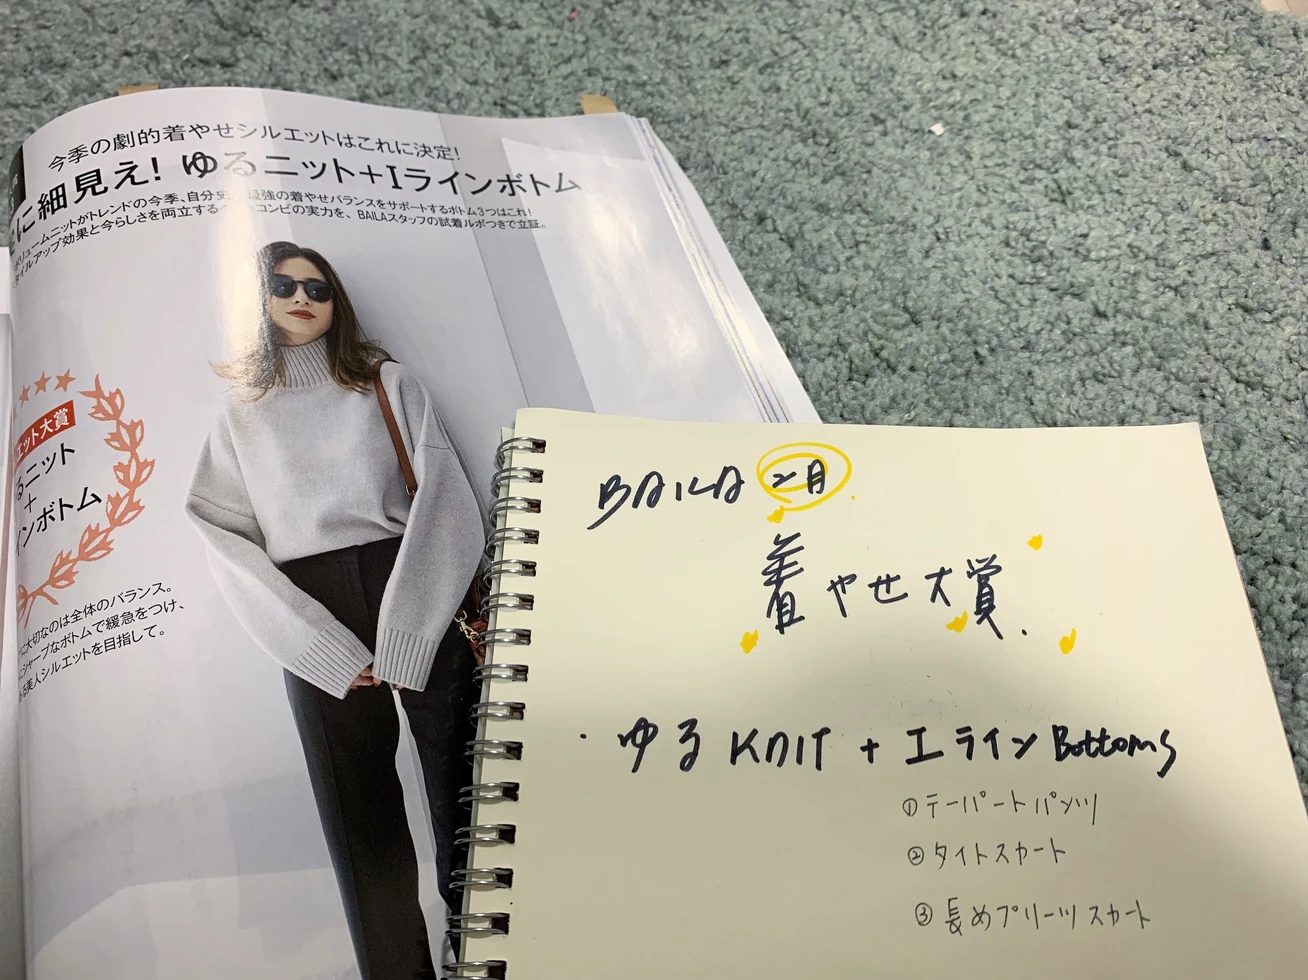 今季の劇的着やせシルエットはこれに決定!
に細見え! ゆるニット+Iラインボトム
リュームニットがトレンドの今季、自分史 最強の着やせバランスをサポートするボトム3つはこれ!
イルアップ効果と今らしさを両立する コンビの実力を、BAILAスタッフの試着ルポつきで立証。
エット大賞
るニット
+
インボトム
に大切なのは全体のバランス。
シャープなボトムで緩急をつけ、
る美人シルエットを目指して。
BAILA 2月
着やせ大賞.
・ゆる KNIT + Iライン Bottoms
① テーパートパンツ
② タイトスカート
③ 長めプリーツスカート